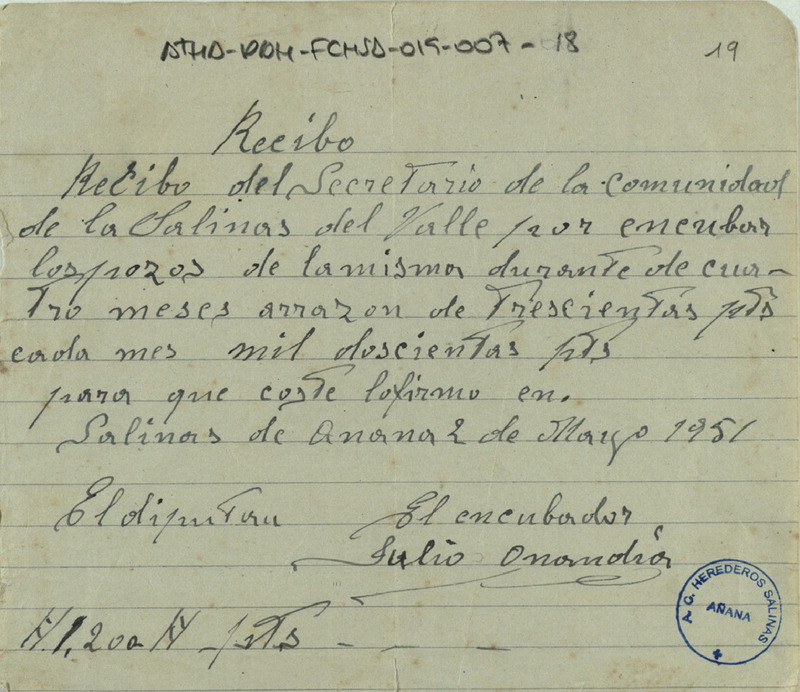 ATHA-DAH-FCHSA-019-007-18
19
Recibo
Recibo del Secretario de la comunidad
de la Salinas del Valle por encubar
los pozos de la misma durante de cua-
tro meses arrazon de Trescientas pts
cada mes mil doscientas pts
para que coste lo firmo en.
Salinas de Anana 2 de Mayo 1951
El diputau El encubador
Julio Onandia
1,200 pts - - - -
A. C. HEREDEROS SALINAS
AÑANA